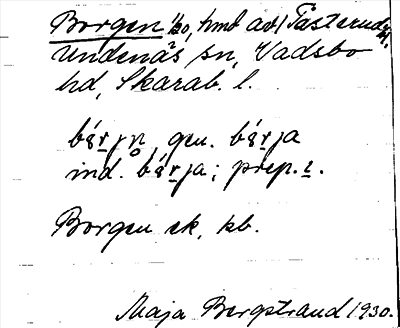 Borgen 1/20, hmt av Tåsterud
Undenäs sn, Vadsbo
hd, Skarab. l.
bá̱rjn̥, gen. bá̱rja
ind. bá̱rja; prep. i.
Borgen ek, kb.
Maja Bergstrand 1930.